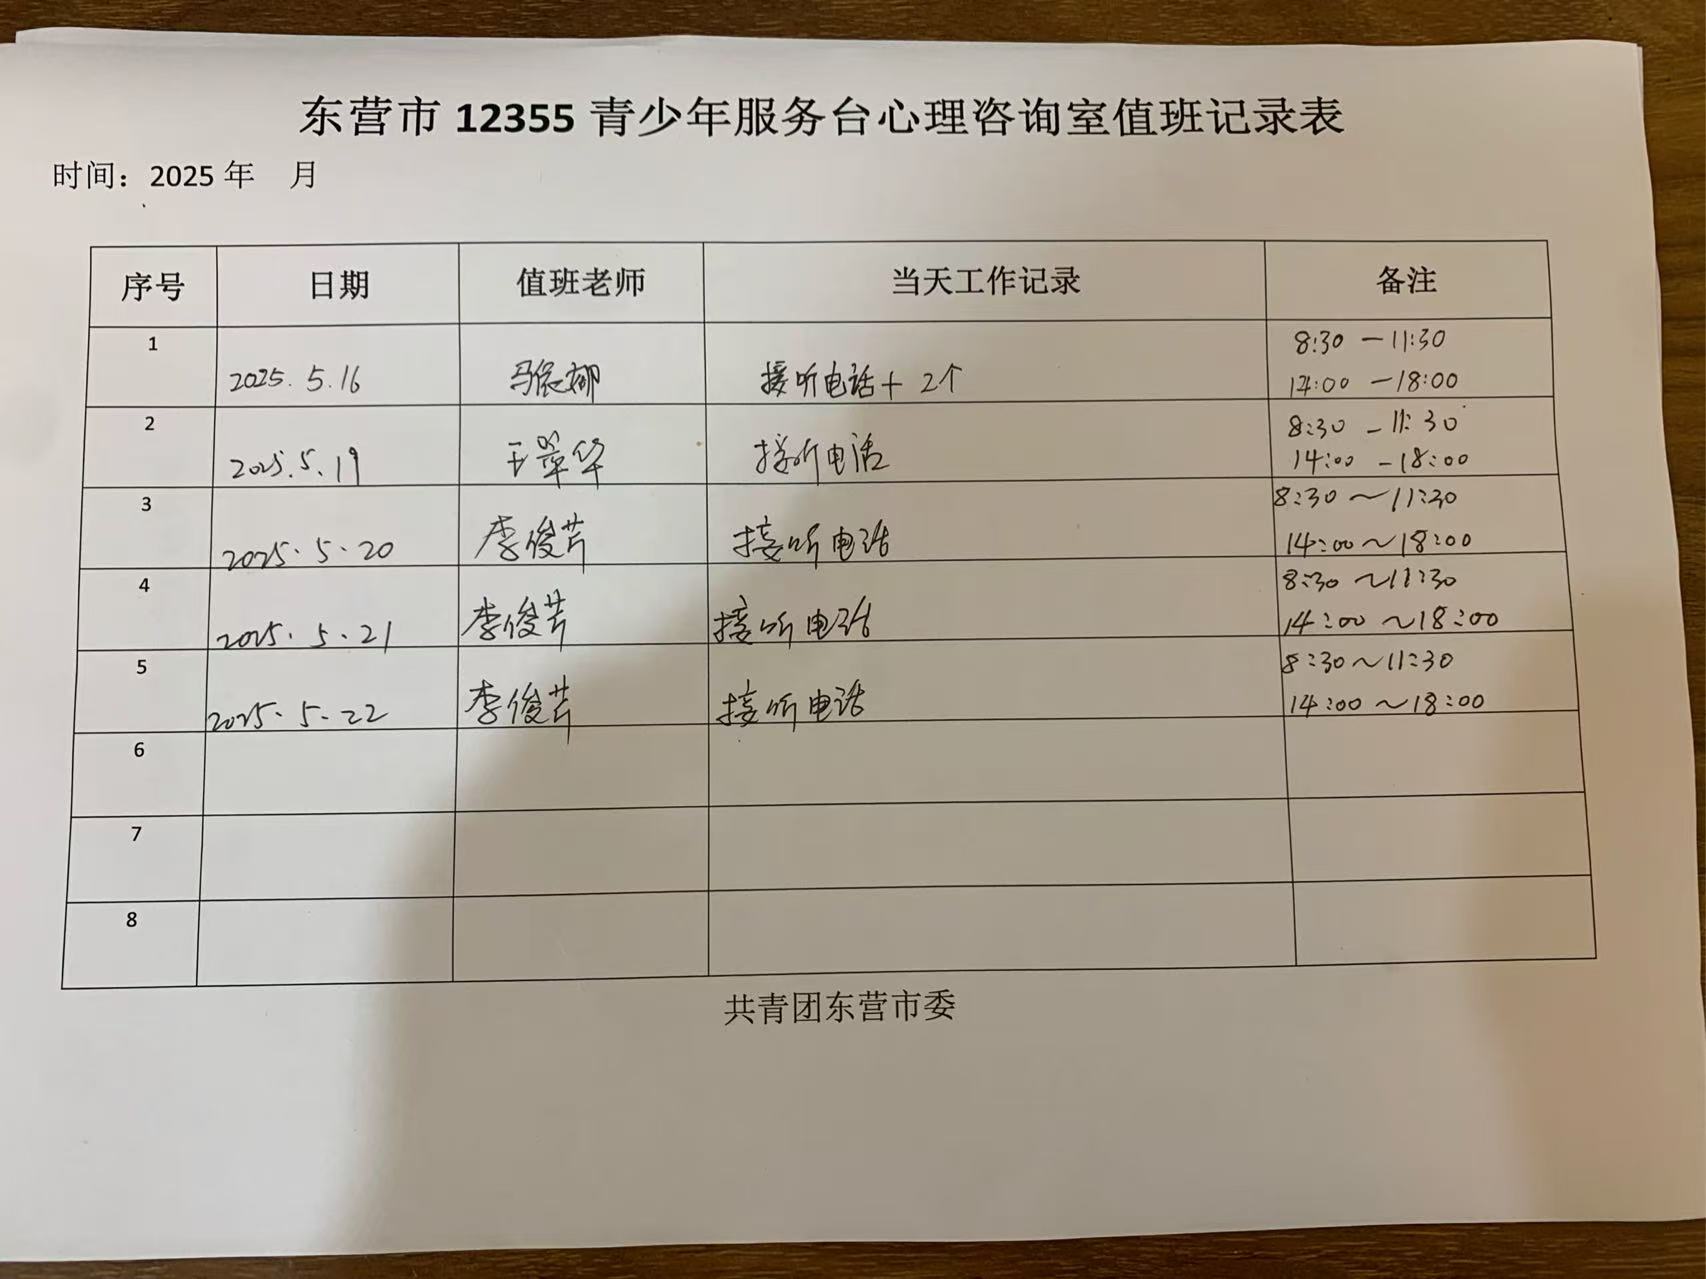 东营市 12355 青少年服务台心理咨询室值班记录表
时间：2025 年 月
序号 日期 值班老师 当天工作记录 备注
1 2025.5.16 接听电话+2个 8:30 — 11:30
14:00 — 18:00
2 2025.5.19 王翠华 接听电话 8:30 — 11:30
14:00 — 18:00
3 2025.5.20 李俊芹 接听电话 8:30～11:30
14:00～18:00
4 2025.5.21 李俊芹 接听电话 8:30～11:30
14:00～18:00
5 2025.5.22 李俊芹 接听电话 8:30～11:30
14:00～18:00
6
7
8
共青团东营市委